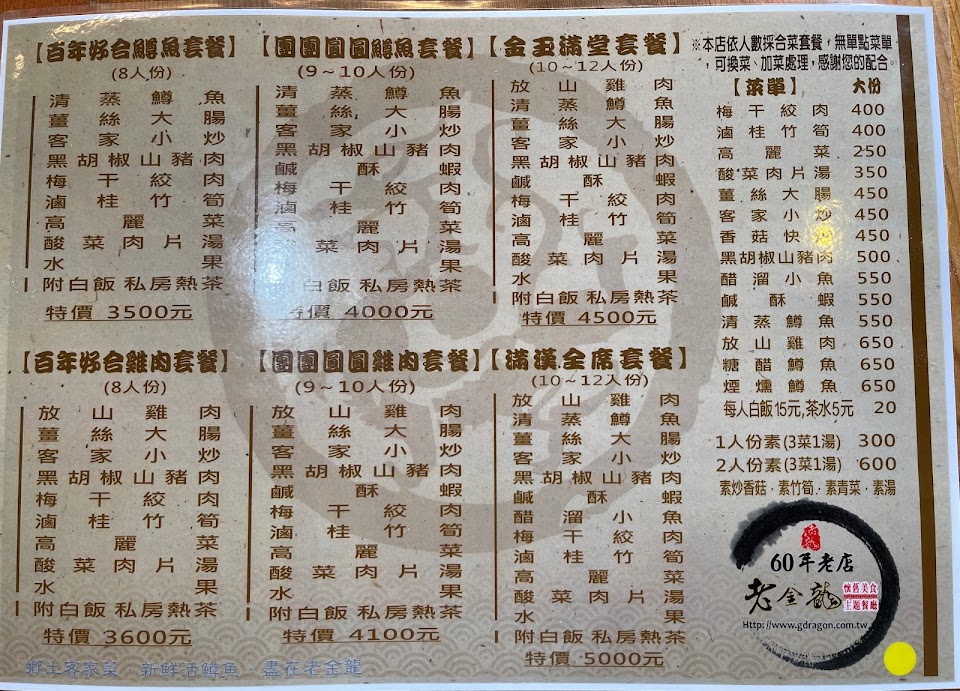 【百年好合鱒魚套餐】
(8人份)
清蒸鱒魚
薑絲大腸
客家小炒
黑胡椒山豬肉
梅干絞肉
滷桂竹筍
高麗菜
酸菜肉片湯
水果
附白飯 私房熱茶
特價 3500元
【團團圓圓鱒魚套餐】
(9～10人份)
清蒸鱒魚
薑絲大腸
客家小炒
黑胡椒山豬肉
鹹酥蝦
梅干絞肉
滷桂竹筍
高麗菜
菜肉片湯
果
附白飯 私房熱茶
特價 4000元
【金玉滿堂套餐】
(10～12人份)
放山雞肉
清蒸鱒魚
薑絲大腸
客家小炒
黑胡椒山豬肉
鹹酥蝦
梅干絞肉
滷桂竹筍
高麗菜
酸菜肉片湯
水果
附白飯 私房熱茶
特價 4500元
【百年好合雞肉套餐】
(8人份)
放山雞肉
薑絲大腸
客家小炒
黑胡椒山豬肉
梅干絞肉
滷桂竹筍
高麗菜
酸菜肉片湯
水果
附白飯 私房熱茶
特價 3600元
【團團圓圓雞肉套餐】
(9～10人份)
放山雞肉
薑絲大腸
客家小炒
黑胡椒山豬肉
鹹酥蝦
梅干絞肉
滷桂竹筍
高麗菜
酸菜肉片湯
水果
附白飯 私房熱茶
特價 4100元
【滿漢全席套餐】
(10～12人份)
放山雞肉
清蒸鱒魚
薑絲大腸
客家小炒
黑胡椒山豬肉
鹹酥蝦
醋溜小魚
梅干絞肉
滷桂竹筍
高麗菜
酸菜肉片湯
水果
附白飯 私房熱茶
特價 5000元
※本店依人數採合菜套餐，無單點菜單
，可換菜、加菜處理，感謝您的配合。
【菜單】 大份
梅干絞肉 400
滷桂竹筍 400
高麗菜 250
酸菜肉片湯 350
薑絲大腸 450
客家小炒 450
香菇快 450
黑胡椒山豬肉 500
醋溜小魚 550
鹹酥蝦 550
清蒸鱒魚 550
放山雞肉 650
糖醋鱒魚 650
煙燻鱒魚 650
每人白飯15元,茶水5元 20
1人份素(3菜1湯) 300
2人份素(3菜1湯) 600
素炒香菇．素竹筍．素青菜．素湯
60年老店
老金龍
懷舊美食
主題餐廳
Http://www.gdragon.com.tw
鄉土客家菜．新鮮活鱒魚．盡在老金龍